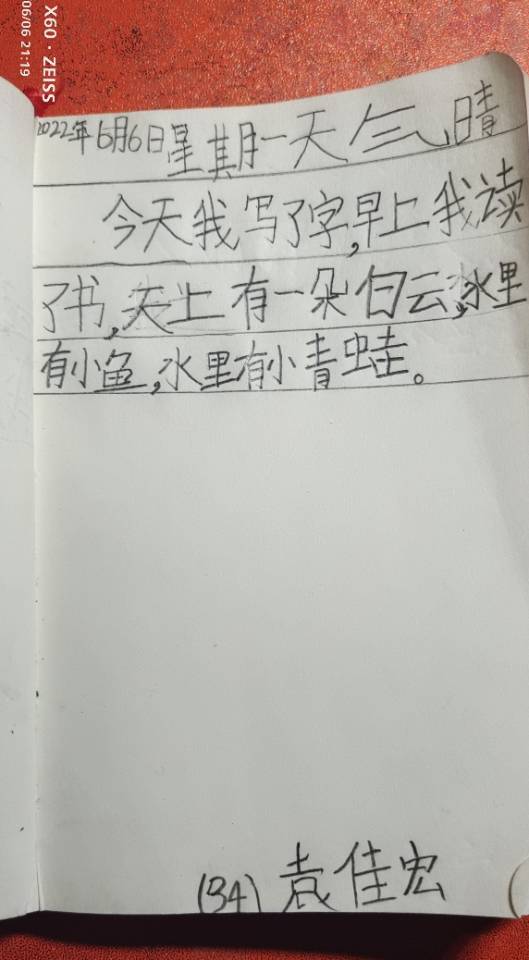 X60 · ZEISS
06/06 21:19
2022年6月6日星期一天气晴
今天我写了字,早上我读
了书,天上有一朵白云,水里
有小鱼,水里有小青蛙。
(34) 袁佳宏